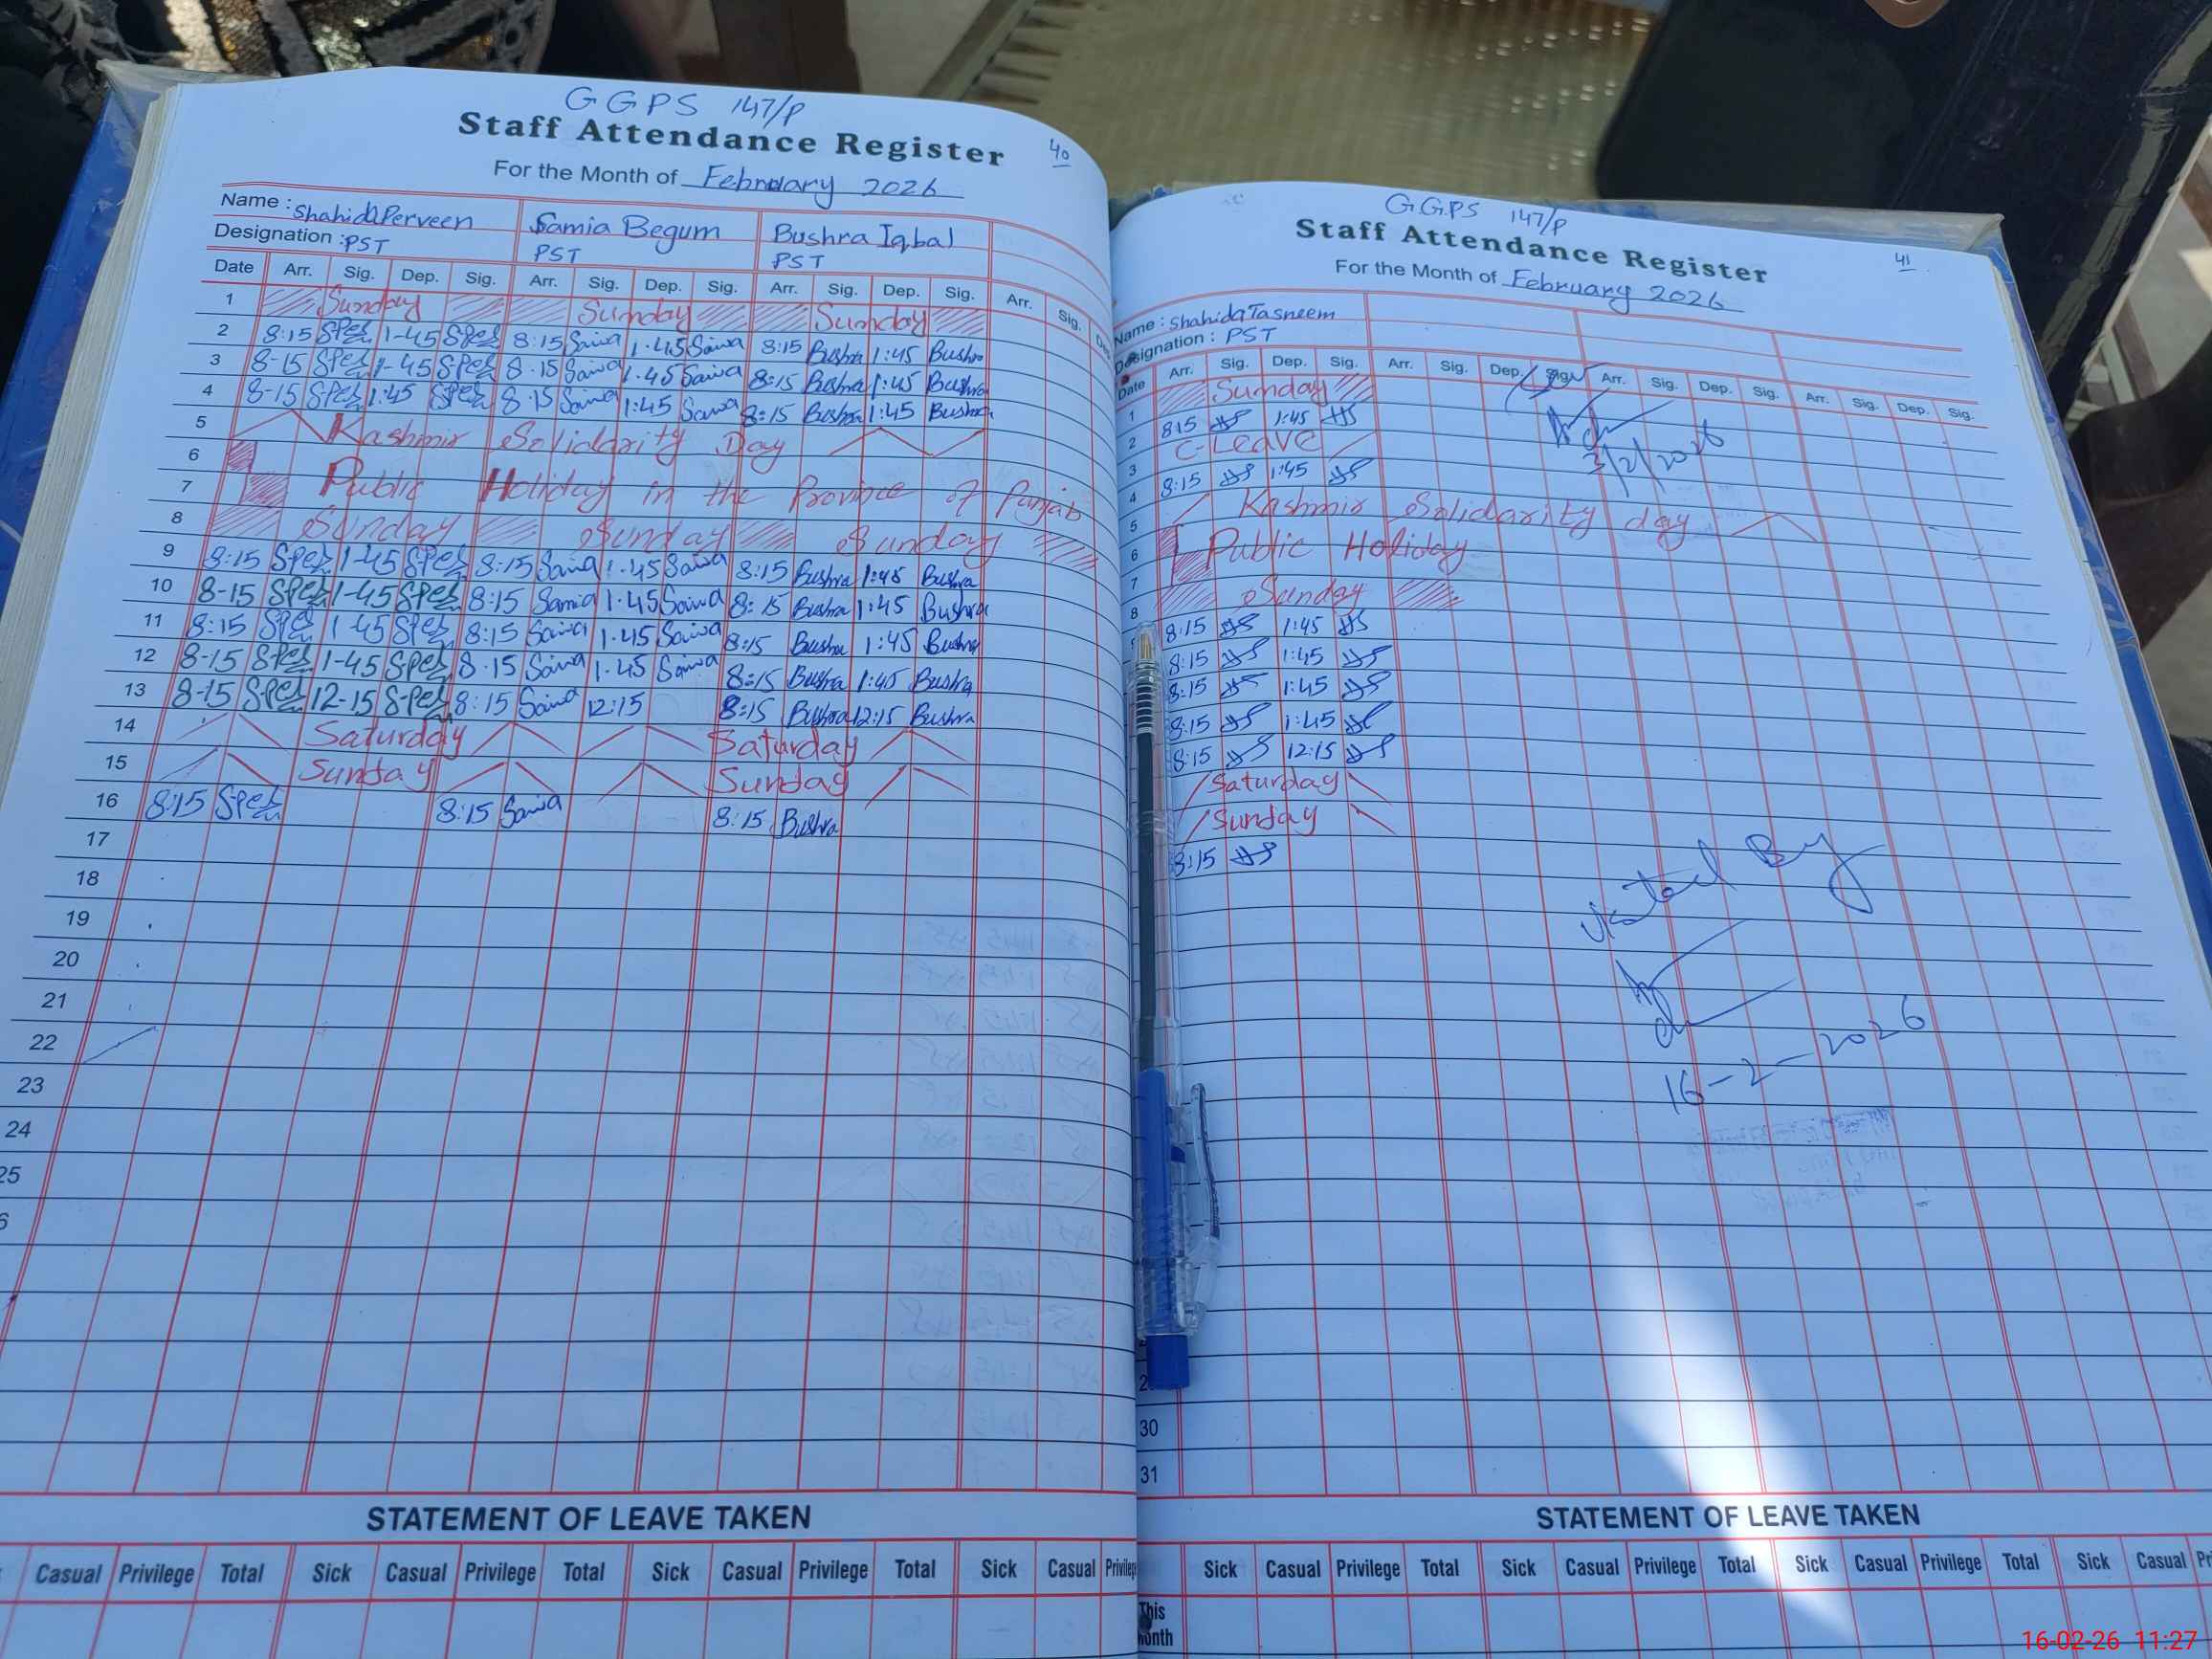 GGPS 147/P
Staff Attendance Register
40
For the Month of February 2026
Name : Shahida Perveen Samia Begum Bushra Iqbal
Designation : PST PST PST
Date Arr. Sig. Dep. Sig. Arr. Sig. Dep. Sig. Arr. Sig. Dep. Sig. Arr. Sig.
1 Sunday Sunday Sunday
2 8:15 SPer 1-45 SPer 8:15 Samia 1.45 Samia 8:15 Bushra 1:45 Bushra
3 8-15 SPer 1-45 SPer 8.15 Samia 1.45 Samia 8:15 Bushra 1:45 Bushra
4 8-15 SPer 1:45 SPer 8.15 Samia 1:45 Samia 8:15 Bushra 1:45 Bushra
5 Kashmir Solidarity Day
6
7 Public Holiday in the Province of Punjab
8 Sunday Sunday Sunday
9 8:15 SPer 1-45 SPer 8:15 Samia 1.45 Samia 8:15 Bushra 1:45 Bushra
10 8-15 SPer 1-45 SPer 8:15 Samia 1.45 Samia 8:15 Bushra 1:45 Bushra
11 8:15 SPer 1-45 SPer 8:15 Samia 1.45 Samia 8:15 Bushra 1:45 Bushra
12 8-15 SPer 1-45 SPer 8.15 Samia 1.45 Samia 8:15 Bushra 1:45 Bushra
13 8-15 SPer 12-15 SPer 8:15 Samia 12:15 8:15 Bushra 12:15 Bushra
14 Saturday Saturday
15 Sunday Sunday
16 8:15 SPer 8:15 Samia 8:15 Bushra
17
18
19
20
21
22
23
24
25
6
STATEMENT OF LEAVE TAKEN
Casual Privilege Total Sick Casual Privilege Total Sick Casual Privilege Total Sick Casual Privilege
G.G.P.S 147/P
Staff Attendance Register
41
For the Month of February 2026
Name : Shahida Tasneem
Designation : PST
Date Arr. Sig. Dep. Sig. Arr. Sig. Dep. Sig. Arr. Sig. Dep. Sig. Arr. Sig. Dep. Sig.
1 Sunday
2 8:15 1:45
3 C-Leave
3/2/2026
4 8:15 1:45
5 Kashmir Solidarity day
6 Public Holiday
7
8 Sunday
9 8:15 1:45
8:15 1:45
8:15 1:45
8:15 1:45
8:15 12:15
Saturday
Sunday
8:15
Visited By
16-2-2026
30
31
STATEMENT OF LEAVE TAKEN
Sick Casual Privilege Total Sick Casual Privilege Total Sick Casual Privilege Total Sick Casual
This
Month
16-02-26 11:27